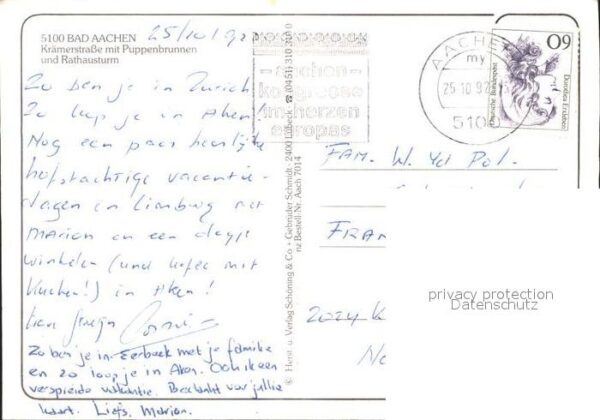 5100 BAD AACHEN
Krämerstraße mit Puppenbrunnen
und Rathausturm
25/10/92
Zo ben je in Zurich
Zo loop je in Aken!
Nog een paar heerlijke
herfstachtige vacantie-
dagen in Limburg met
Marion en een dagje
winkelen (und Kafee mit
Kuchen!) in Aken!
Zo ben je in Eerbeek met je familie
en zo loop je in Aken. Ook ik een
verspreide vakantie. Bedankt voor jullie
kaart. Liefs, Marion.
© Herst. u. Verlag Schöning & Co + Gebrüder Schmidt, 2400 Lübeck ☎ (0451) 310
Bestell-Nr. Aach 7014
aachen
kongresse
im herzen
europas
AACHEN
my
25.10.92
5100
60
Deutsche Bundespost
Dorothea Erxleben
FAM. W. vd Pol.
FRAN
2024 K
privacy protection
Datenschutz